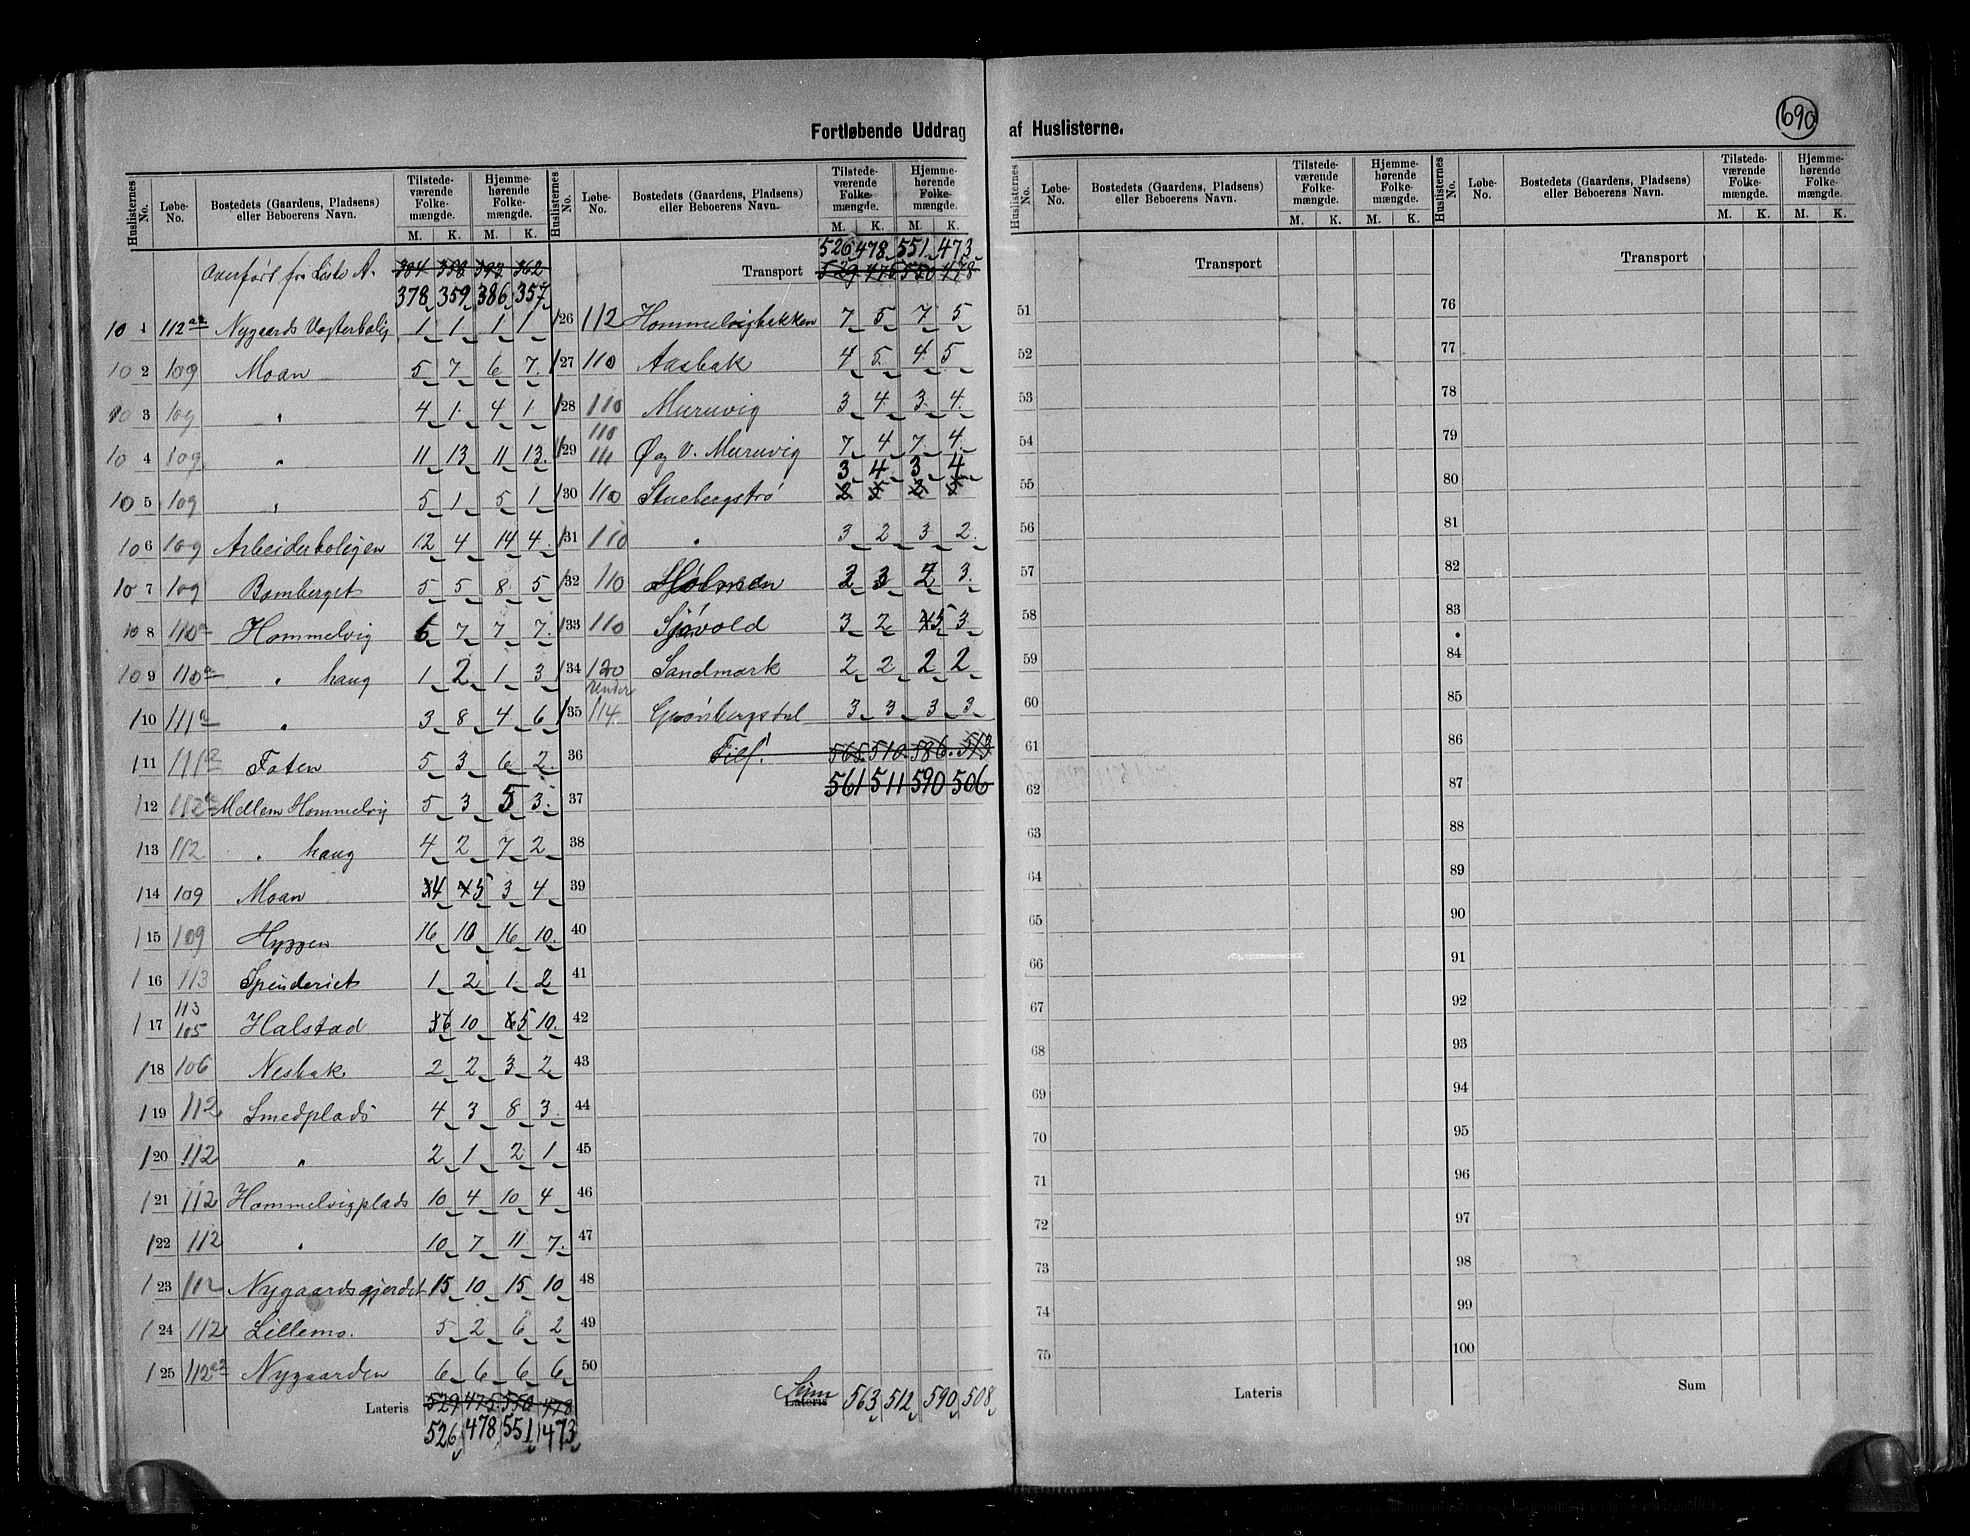 690
Fortløbende Uddrag af Huslisterne.
Huslisternes No. Løbe-No. Bostedets (Gaardens, Pladsens) eller Beboerens Navn. Tilstedeværende Folkemængde. Hjemmehørende Folkemængde. M. K. M. K.
Overført fra Liste A. 384 358 393 362
378 359 386 357
10 1 112 a2 Nygaards Vogterbolig 1 1 1 1
10 2 109 Moan 5 7 6 7
10 3 109 " 4 1 4 1
10 4 109 " 11 13 11 13
10 5 109 " 5 1 5 1
10 6 109 Arbeiderboligen 12 4 14 4
10 7 109 Bomberget 5 5 8 5
10 8 110a Hommelvig 6 7 7 7
10 9 110a " haug 1 2 1 3
1 10 111a " 3 8 4 6
1 11 111a Foten 5 3 6 2
1 12 112a Mellem Hommelvig 5 3 5 3
1 13 112 " haug 4 2 7 2
1 14 109 Moan 4 5 3 4
1 15 109 Hyggen 16 10 16 10
1 16 113 Spinderiet 1 2 1 2
113
1 17 105 Halstad 6 10 5 10
1 18 106 Nesbak 2 2 3 2
1 19 112 Smedplads 4 3 8 3
1 20 112 " 2 1 2 1
1 21 112 Hommelvigplads 10 4 10 4
1 22 112 " 10 7 11 7
1 23 112 Nygaardsgjerdet 15 10 15 10
1 24 112 Lillemo. 5 2 6 2
1 25 112 a2 Nygaarden 6 6 6 6
Lateris 529 475 550 478
526 478 551 473
Huslisternes No. Løbe-No. Bostedets (Gaardens, Pladsens) eller Beboerens Navn. Tilstedeværende Folkemængde. Hjemmehørende Folkemængde. M. K. M. K.
526 478 551 473
Transport 529 475 550 478
1 26 112 Hommelvigbakken 7 5 7 5
1 27 110 Aasbak 4 5 4 5
1 28 110 Muruvig 3 4 3 4
110
1 29 111 Ø og V. Muruvig 7 4 7 4
3 4 3 4
1 30 110 Stuebergstrø 2 5 2 5
1 31 110 " 3 2 3 2
1 32 110 Holmen 2 3 2 3
1 33 110 Sjøvold 3 2 5 3
1 34 120 Sandmark 2 2 2 2
under
1 35 114. Grønbergsdal 3 3 3 3
36 Tils. 565 510 586 513
561 511 590 506
37
38
39
40
41
42
43
44
45
46
47
48
49
50
Sum
Lateris 563 512 590 508
Huslisternes No. Løbe-No. Bostedets (Gaardens, Pladsens) eller Beboerens Navn. Tilstedeværende Folkemængde. Hjemmehørende Folkemængde. M. K. M. K.
Transport
51
52
53
54
55
56
57
58
59
60
61
62
63
64
65
66
67
68
69
70
71
72
73
74
75
Lateris
Huslisternes No. Løbe-No. Bostedets (Gaardens, Pladsens) eller Beboerens Navn. Tilstedeværende Folkemængde. Hjemmehørende Folkemængde. M. K. M. K.
Transport
76
77
78
79
80
81
82
83
84
85
86
87
88
89
90
91
92
93
94
95
96
97
98
99
100
Sum